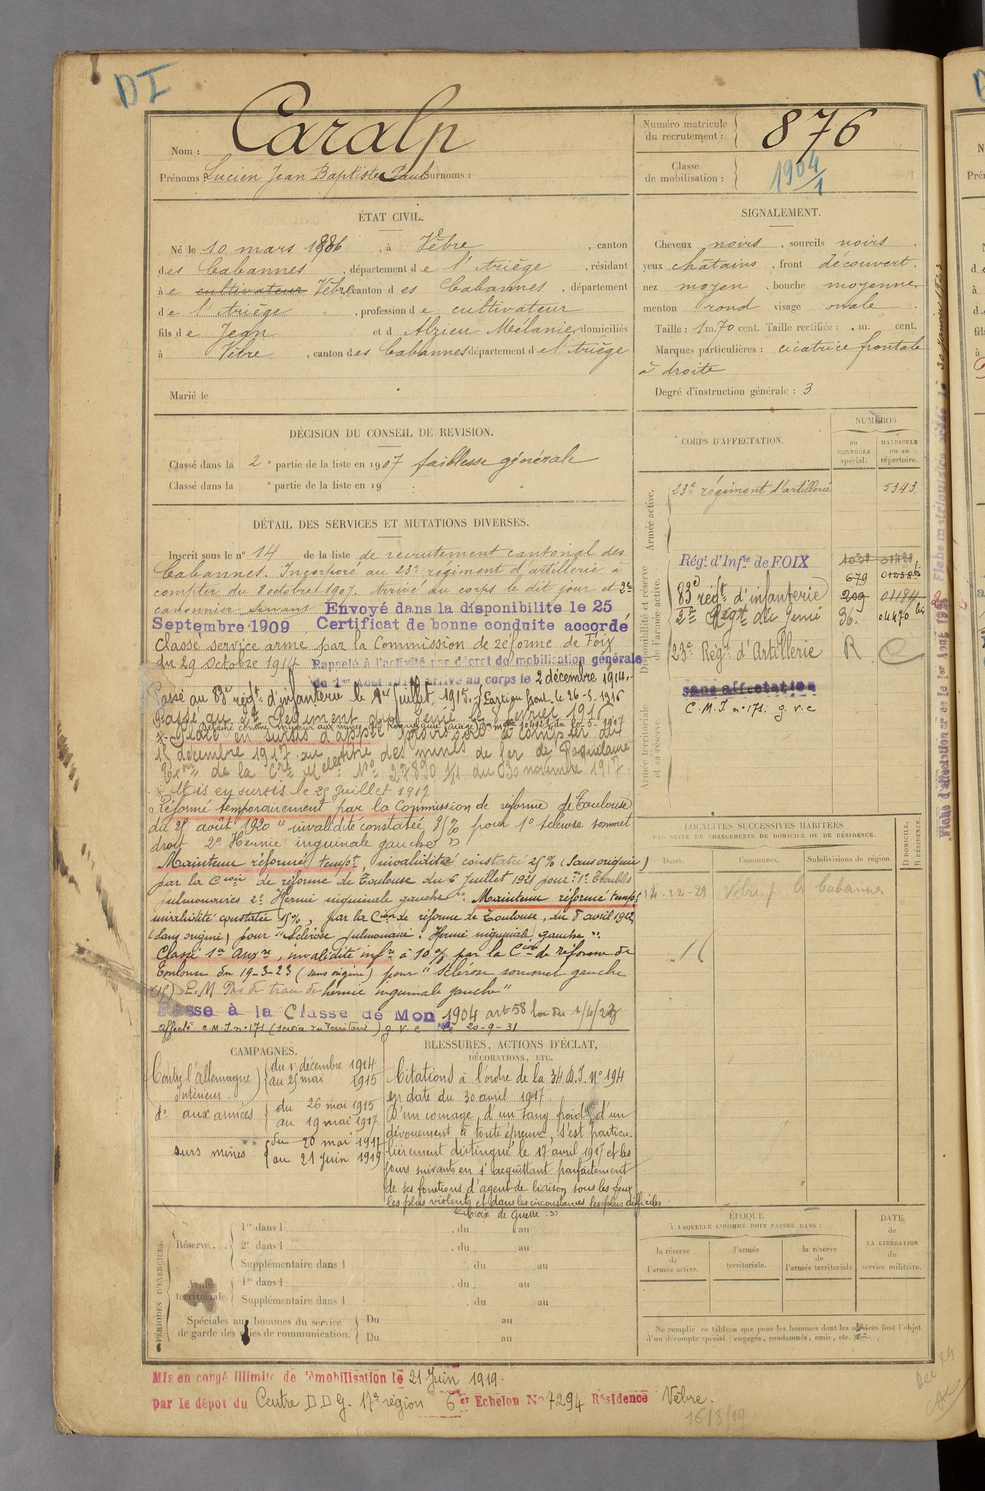 DI
Nom : Caralp
Prénoms : Lucien Jean Baptiste Paul Surnoms :
Numéro matricule du recrutement : 876
Classe de mobilisation : 1904/1
ÉTAT CIVIL.
Né le 10 mars 1886, à Vèbre, canton
des Cabannes, département de l'Ariège, résidant
à cultivateur Vèbre canton des Cabannes, département
de l'Ariège, profession de cultivateur
fils de Jean et d'Alzieu Mélanie domiciliés
à Vèbre, canton des Cabannes département de l'Ariège
Marié le
SIGNALEMENT.
Cheveux noirs, sourcils noirs
yeux châtains, front découvert.
nez moyen, bouche moyenne
menton rond visage ovale
Taille : 1 m. 70 cent. Taille rectifiée : . m. cent.
Marques particulières : cicatrice frontale
à droite
Degré d'instruction générale : 3
DÉCISION DU CONSEIL DE REVISION.
Classé dans la 2e partie de la liste en 1907 faiblesse générale
Classé dans la e partie de la liste en 19
DÉTAIL DES SERVICES ET MUTATIONS DIVERSES.
Inscrit sous le n° 14 de la liste de recrutement cantonal des
Cabannes. Incorporé au 23e régiment d'artillerie à
compter du 8 octobre 1907. Arrivé au corps le dit jour et 2e
canonnier servant Envoyé dans la disponibilité le 25
Septembre 1909 Certificat de bonne conduite accordé
Classé service armé par la Commission de réforme de Foix
du 29 Octobre 1914 Rappelé à l'activité par décret de mobilisation générale
du 1er Août 1914 arrivé au corps le 2 décembre 1914.
Passé au 83e régt d'infanterie le 1er juillet 1915. Parti au front le 26-5-1916
Passé au 2e Régiment du Génie
Placé en sursis d'appel
15 décembre 1917 au titre des mines de fer de
de la Cie N° 27890 1/1 du 30 novembre 1917.
Mis en sursis le 25 Juillet 1917
Réformé temporairement par la Commission de réforme de Toulouse
du 25 août 1920 "invalidité constatée 35% pour 1° sclérose sommet
droit 2° Hernie inguinale gauche"
Maintenu réformé tempt, invalidité constatée 25% (sans origine)
par la Cion de réforme de Toulouse du 6 Juillet 1921 pour : 1° Troubles
pulmonaires 2° Hernie inguinale gauche". Maintenu réformé tempt
invalidité constatée 15%, par la Con de réforme de Toulouse, du 8 avril 1922
(sans origine) pour "Sclérose pulmonaire. Hernie inguinale gauche".
Classé 1er Auxre, invalidité infre à 10% par la Cion de réforme de
Toulouse du 19-3-23 (sans origine) pour "sclérose sommet gauche
hernie inguinale gauche"
Passe à la Classe de Mon 1904 art 58 loi du 1/4/23
Affecté C.M.I. n° 171 (service du Territoire) g.v.c 20-9-31
CORPS D'AFFECTATION.
NUMÉROS
DU CONTRÔLE spécial.
MATRICULE ou au répertoire.
Armée active.
23e régiment d'artillerie 5343
Disponibilité et réserve de l'armée active.
Régt d'Infie de FOIX
679
83e régt d'infanterie 209 01184
2e Régt du Génie 36. 04470 bis
23e Régt d'Artillerie R
Armée territoriale et sa réserve.
sans affectation
C.M.I. n° 171. g.v.c
LOCALITÉS SUCCESSIVES HABITÉES
PAR SUITE DE CHANGEMENTS DE DOMICILE OU DE RÉSIDENCE.
Dates.
Communes.
Subdivisions de région.
D DOMICILE.
R RÉSIDENCE.
14-12-29 Vèbre les Cabannes
CAMPAGNES.
Contre l'Allemagne
Intérieur. du 1 décembre 1914 au 25 mai 1915
d° aux armées du 26 mai 1915 au 19 mai 1917
surs mines du 20 mai 1917 au 21 Juin 1919
BLESSURES, ACTIONS D'ÉCLAT,
DÉCORATIONS, ETC.
Citations à l'ordre de la 34 D.I. N° 194
en date du 30 avril 1917.
D'un courage, d'un sang froid, d'un
dévouement à toute épreuve, s'est particu-
lièrement distingué le 17 avril 1917 et les
jours suivants en s'acquittant parfaitement
de ses fonctions d'agent de liaison sous les feux
les plus violents et dans les circonstances les plus difficiles
"Croix de Guerre"
PÉRIODES D'EXERCICES.
Réserve... 1re dans l , du au
2e dans l , du au
Supplémentaire dans l , du au
Armée territoriale. 1re dans l , du au
Supplémentaire dans l , du au
Spéciales aux hommes du service
de garde des voies de communication. Du au
Du au
ÉPOQUE
À LAQUELLE L'HOMME DOIT PASSER DANS :
la réserve de l'armée active.
l'armée territoriale.
la réserve de l'armée territoriale
DATE de LA LIBÉRATION du service militaire.
Ne remplir ce tableau que pour les hommes dont les services font l'objet
d'un décompte spécial (engagés, condamnés, omis, etc.)
Mis en congé illimité de démobilisation le 21 Juin 1919.
par le dépôt du Centre D D G. 17e région 6er Echelon N° 7294 Résidence Vèbre.
16/8/19